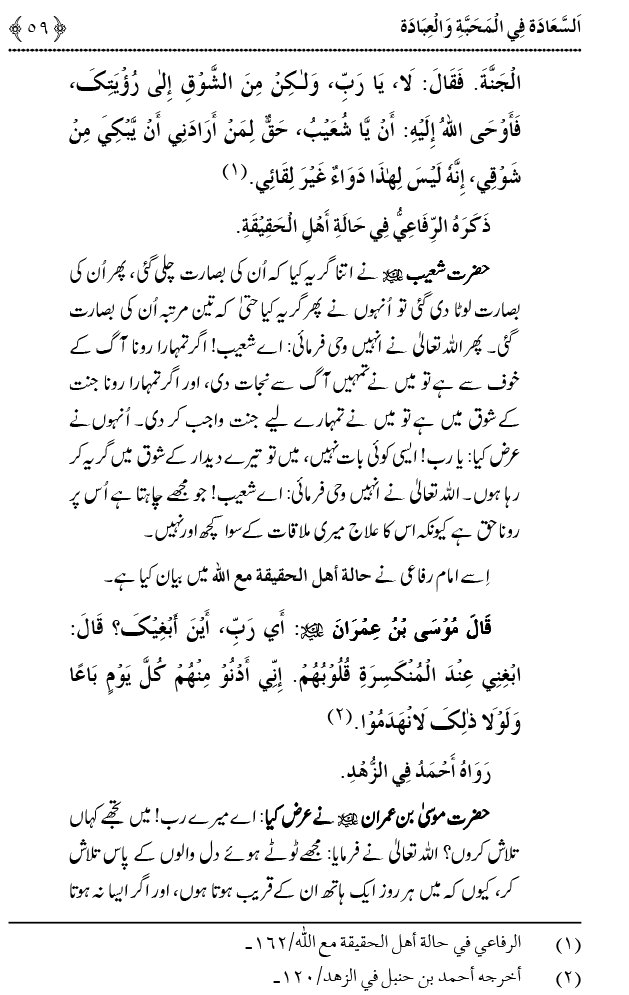 اَلسَّعَادَة فِي الْمَحَبَّةِ وَالْعِبَادَة ﴿٥٩﴾
الْجَنَّةَ. فَقَالَ: لَا، يَا رَبِّ، وَلٰكِنْ مِنَ الشَّوْقِ إِلٰى رُؤْيَتِكَ،
فَأَوْحَى اللهُ إِلَيْهِ: أَنْ يَّا شُعَيْبُ، حَقٌّ لِمَنْ أَرَادَنِي أَنْ يَّبْكِيَ مِنْ
شَوْقِي، إِنَّهٗ لَيْسَ لِهٰذَا دَوَاءٌ غَيْرَ لِقَائِي.(١)
ذَكَرَهُ الرِّفَاعِيُّ فِي حَالَةِ أَهْلِ الْحَقِيْقَةِ.
حضرت شعیب ﷤ نے اتنا گریہ کیا کہ اُن کی بصارت چلی گئی، پھر اُن کی
بصارت لوٹا دی گئی تو اُنہوں نے پھر گریہ کیا حتیٰ کہ تین مرتبہ اُن کی بصارت
گئی۔ پھر اللہ تعالیٰ نے انہیں وحی فرمائی: اے شعیب! اگر تمہارا رونا آگ کے
خوف سے ہے تو میں نے تمہیں آگ سے نجات دی، اور اگر تمہارا رونا جنت
کے شوق میں ہے تو میں نے تمہارے لیے جنت واجب کر دی۔ اُنہوں نے
عرض کیا: یا رب! ایسی کوئی بات نہیں، میں تو تیرے دیدار کے شوق میں گریہ کر
رہا ہوں۔ اللہ تعالیٰ نے انہیں وحی فرمائی: اے شعیب! جو مجھے چاہتا ہے اُس پر
رونا حق ہے کیونکہ اس کا علاج میری ملاقات کے سوا کچھ اور نہیں۔
اِسے امام رفاعی نے حالة أهل الحقيقة مع الله میں بیان کیا ہے۔
قَالَ مُوْسَى بْنُ عِمْرَانَ ﷤: أَي رَبِّ، أَيْنَ أَبْغِيْكَ؟ قَالَ:
ابْغِنِي عِنْدَ الْمُنْكَسِرَةِ قُلُوْبُهُمْ. إِنِّي أَدْنُوْ مِنْهُمْ كُلَّ يَوْمٍ بَاعًا
وَلَوْلَا ذٰلِكَ لَانْهَدَمُوْا.(٢)
رَوَاهُ أَحْمَدُ فِي الزُّهْدِ.
حضرت موسیٰ بن عمران ﷤ نے عرض کیا: اے میرے رب! میں تجھے کہاں
تلاش کروں؟ اللہ تعالیٰ نے فرمایا: مجھے ٹوٹے ہوئے دل والوں کے پاس تلاش
کر، کیوں کہ میں ہر روز ایک ہاتھ ان کے قریب ہوتا ہوں، اور اگر ایسا نہ ہوتا
(١) الرفاعي في حالة أهل الحقيقة مع الله/١٦٢ـ
(٢) أخرجه أحمد بن حنبل في الزهد/١٢٠ـ